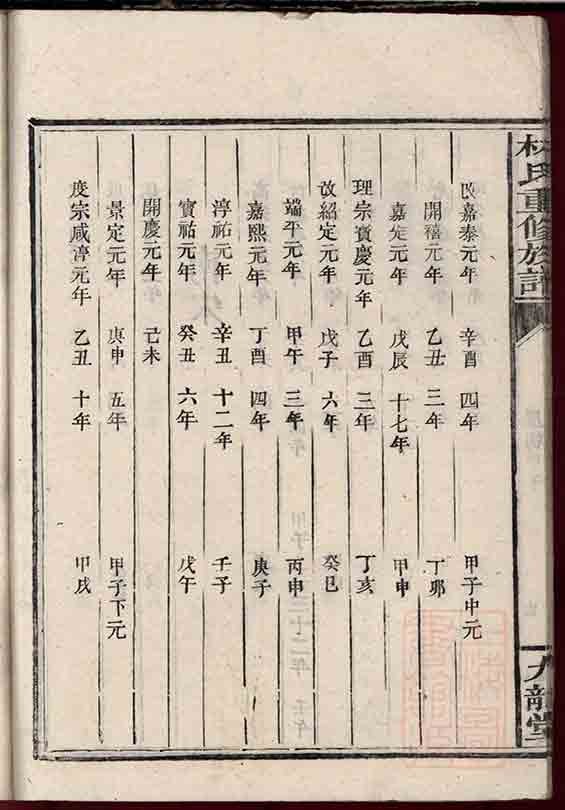 林氏重修族譜
改嘉泰元年 辛酉 四年 甲子中元
開禧元年 乙丑 三年 丁卯
嘉定元年 戊辰 十七年 甲申
理宗寶慶元年 乙酉 三年 丁亥
改紹定元年 戊子 六年 癸巳
端平元年 甲午 三年 丙申
嘉熙元年 丁酉 四年 庚子
淳祐元年 辛丑 十二年 壬子
寶祐元年 癸丑 六年 戊午
開慶元年 己未
景定元年 庚申 五年 甲子下元
度宗咸淳元年 乙丑 十年 甲戌
九龍堂